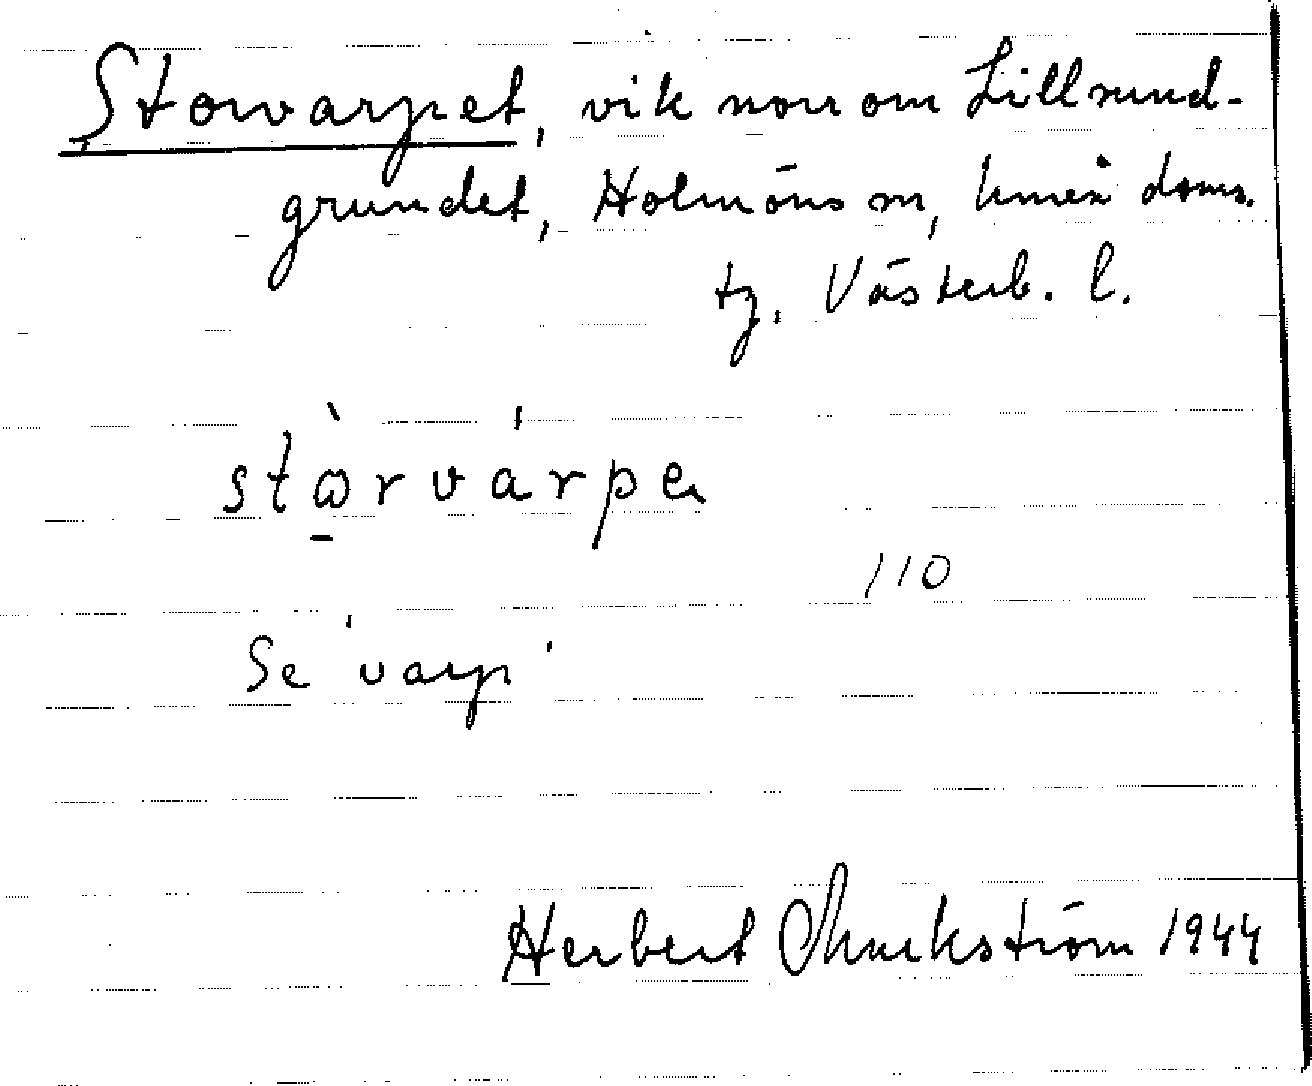 Storvarpet, vik norr om Lillrund-
grundet, Holmöns sn, Umeå doms.
tj. Västerb. l.
stòrvárpe
110
Se 'varp'
Herbert Markström 1944